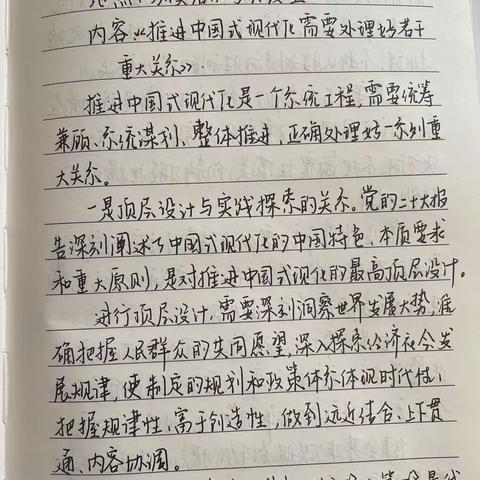 内容《推进中国式现代化需要处理好若干
重大关系》.
推进中国式现代化是一个系统工程,需要统筹
兼顾、系统谋划、整体推进,正确处理好一系列重
大关系。
一是顶层设计与实践探索的关系。党的二十大报
告深刻阐述了中国式现代化的中国特色、本质要求
和重大原则,是对推进中国式现化的最高顶层设计。
进行顶层设计,需要深刻洞察世界发展大势,准
确把握人民群众的共同愿望,深入探索经济社会发
展规律,使制定的规划和政策体系体现时代性、
把握规律性、富于创造性,做到远近结合、上下贯
通、内容协调。